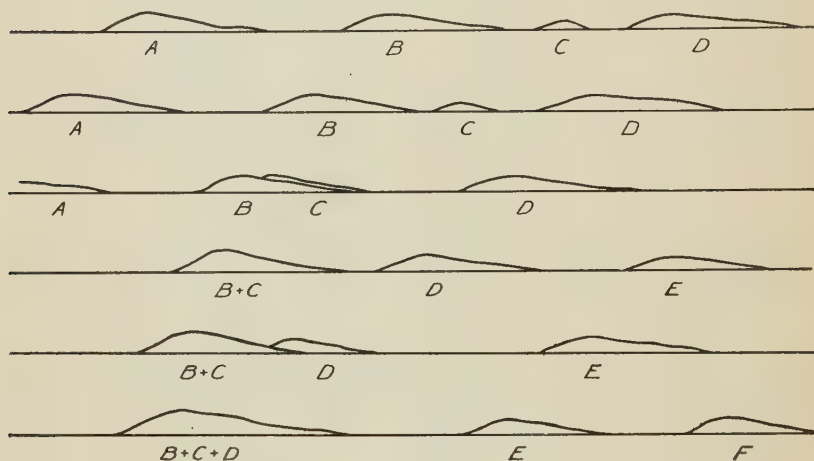 A B C D
A B C D
A B C D
B+C D E
B+C D E
B+C+D E F